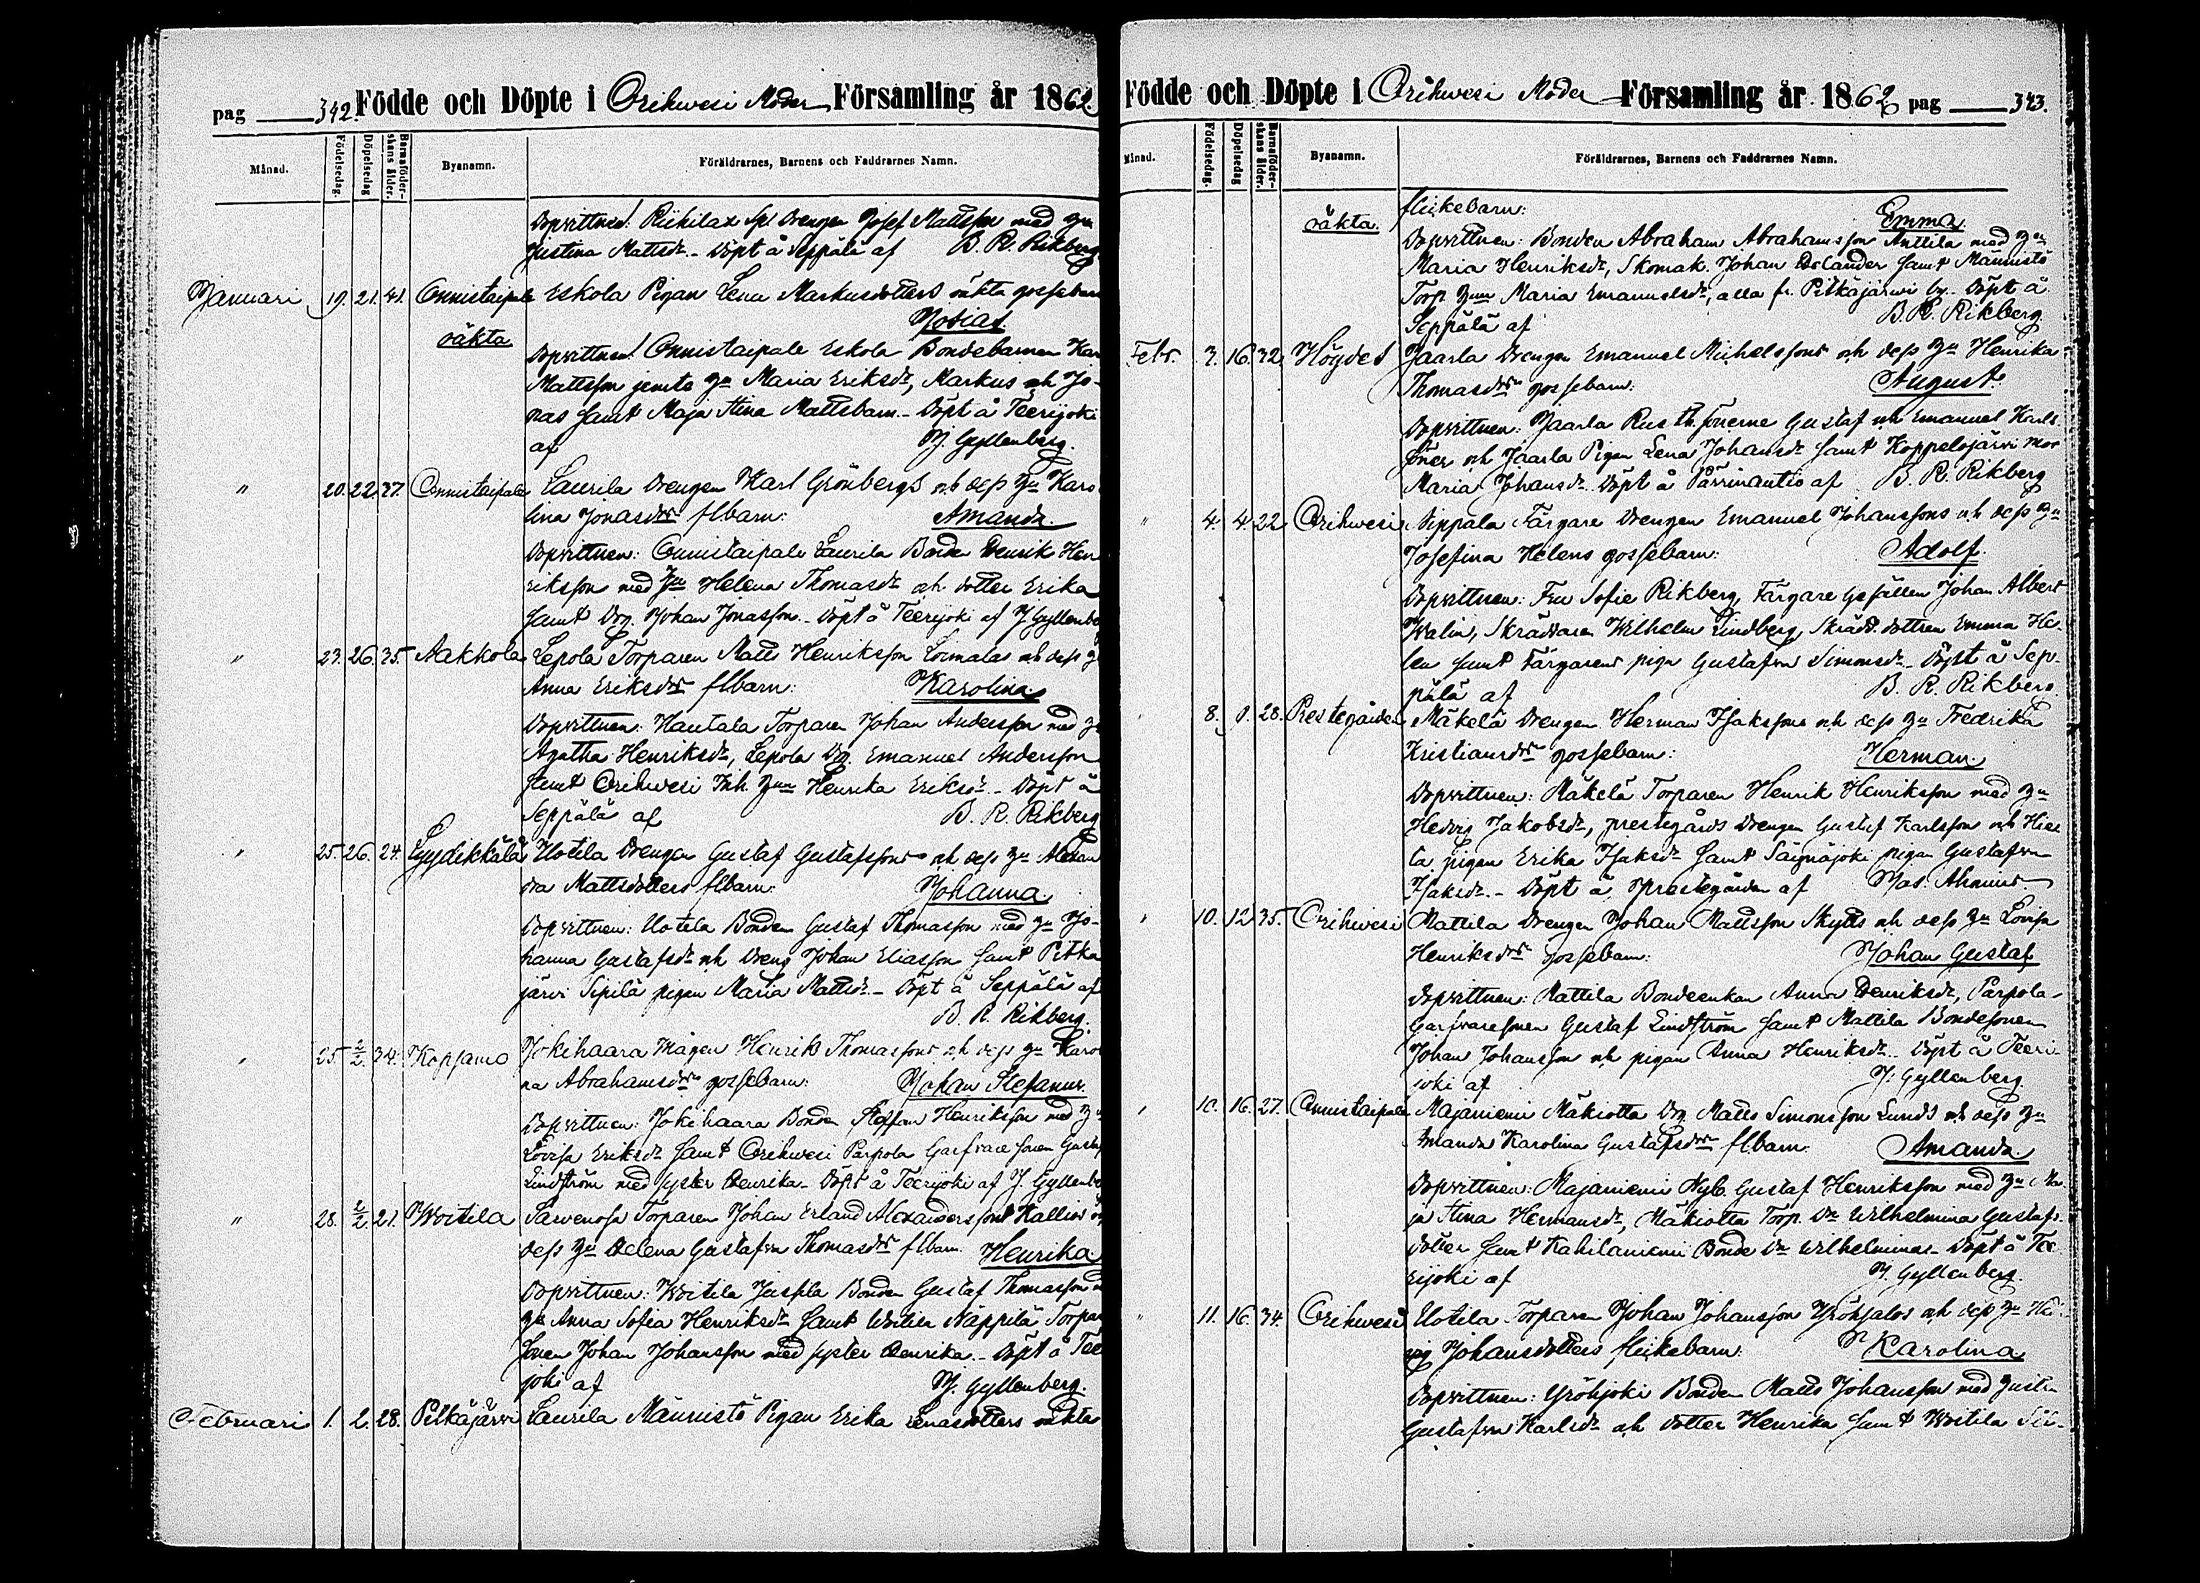 pag 342. Födde och Döpte i Orihwesi Moder Församling år 1862
Månad. Födelsedag. Döpelsedag Barnaföderskans ålder. Byanamn. Föräldrarnes, Barnens och Faddrarnes Namn.
Dopvittnen: Riihilax Spl Drengen Josef Mattsson med hu
Justina Mattsdr. Döpt å Seppälä af B. R. Rikberg
Januari 19. 21. 41. Onnistaipale Eskola Pigan Lena Markusdotters oäkta gossebarn
oäkta Josias.
Dopvittnen: Onnistaipale Eskola Bondebarnen Karl
Mattsson jemte hu Maria Eriksdr, Markus och Jo-
nas samt Maja Stina Mattsbarn. Döpt å Teerijoki
af J. Gyllenberg.
" 20. 22. 37. Onnistaipale Laurila Drengen Karl Grönbergs och dess hu Karo
lina Jonasdrs flbarn: Amanda.
Dopvittnen: Onnistaipale Laurila Bonde Henrik Hen
riksson med hu Helena Thomasdr och dotter Erika
samt Drg. Johan Jonasson. Döpt å Teerijoki af J. Gyllenbe
" 23. 26. 35. Aakkola Lepola Torparen Matts Henriksson Loimalas och dess h
Anna Eriksdrs flbarn: Karolina
Dopvittnen: Hautala Torparen Johan Andersson med h
Agatha Henriksdr, Lepola Drg Emanuel Andersson
samt Orihwesi Inh. hu Henrika Eriksdr. Döpt å
Seppälä af B. R. Rikberg
" 25. 26. 24. Lyydikkälä Uotila Drengen Gustaf Gustafssons och dess hu Alexan
dra Mattsdotters flbarn: Johanna
Dopvittnen: Uotila Bonden Gustaf Thomasson med hu Jo-
hanna Gustafsdr och Dreng Johan Eliasson samt Pitkä
järvi Sipilä pigan Maria Mattsdr. Döpt å Seppälä af
B. R. Rikberg.
" 25. 2/2. 34. Kopsamo Jokihaara Mågen Henrik Thomassons och dess hu Karol
na Abrahamsdrs gossebarn: Johan Stefanus.
Dopvittnen: Jokihaara Bonden Steffan Henriksson med hu
Lovisa Eriksdr samt Orihwesi Parpola Garfvare sonen Gustaf
Lindström med syster Henrika. Döpt å Teerijoki af J. Gyllenbe
" 28. 2/2. 21. Woitila Sarvenoja Torparen Johan Erland Alexanderssons Kallios o
dess hu Helena Gustafva Thomasdrs flbarn. Henrika
Dopvittnen: Woitila Jussila Bonden Gustaf Thomasson m
hu Anna Sofia Henriksdr samt Woitila Näppilä Torpar
Sonen Johan Johansson med syster Henrika. Döpt å Tee
joki af J. Gyllenberg.
Februari 1. 2. 28. Pitkäjärvi Laurila Männistö Pigan Erika Lenasdotters oäkta
Födde och Döpte i Orihwesi Moder Församling år 1862 pag 343.
Månad. Födelsedag. Döpelsedag Barnaföderskans ålder. Byanamn. Föräldrarnes, Barnens och Faddrarnes Namn.
oäkta. flickebarn: Emma
Dopvittnen: Bonden Abraham Abrahamsson Anttila med hu
Maria Henriksdr, Skomak. Johan Helander samt Männistö
Torp. hu Maria Emanuelsdr, alla fr. Pitkäjärvi by. Döpt å
Seppälä af B. R. Rikberg.
Febr. 3. 16. 32. Höydes Jaarla Drengen Emanuel Michelssons och dess hu Henrika
Thomasdrs gossebarn: August.
Dopvittnen: Jaarla Rusth. sönerne Gustaf och Emanuel Karls
söner och Jaarla Pigan Lena Johansdr samt Koppelojärvi mor
Maria Johansdr. Döpt å Pärrinantio af B. R. Rikberg
" 4. 4. 22. Orihwesi Seppälä Färgare Drengen Emanuel Johanssons och dess hu
Josefina Helens gossebarn: Adolf.
Dopvittnen: Fru Sofie Rikberg, Färgare Gesällen Johan Albert
Walin, Skräddaren Wilhelm Lindberg, Skrädd. dottren Emma He-
len samt Färgarens piga Gustafva Simonsdr. Döpt å Sep-
pälä af B. R. Rikberg
" 8. 8. 28. Prestegården Mäkelä Drengen Herman Isakssons och dess hu Fredrika
Kristiansdrs gossebarn: Herman.
Dopvittnen: Mäkelä Torparen Henrik Henriksson med hu
Hedvig Jakobsdr, prestegårds Drengen Gustaf Karlsson och
ta pigan Erika Isaksdr samt Säynäjoki pigan Gustafva
Isaksdr. Döpt å Prestegården af Jos. Ahonius.
" 10. 12. 35. Orihwesi Mattila Drengen Johan Mattsson Skytts och dess hu Lovisa
Henriksdrs gossebarn: Johan Gustaf
Dopvittnen: Mattila Bondeenkan Anna Henriksdr, Parpola
Garfvaresonen Gustaf Lindström samt Mattila Bondesonen
Johan Johansson och pigan Anna Henriksdr. Döpt å Teeri-
joki af J. Gyllenberg.
" 10. 16. 27. Onnistaipale Majaniemi Mäkiotta Drg Matts Simonsson Lunds och dess hu
Amanda Karolina Gustafsdrs flbarn: Amanda.
Dopvittnen: Majaniemi Nyb. Gustaf Henriksson med hu Ma
ja Stina Hermansdr, Mäkiotta Torp. Dr Wilhelmina Gustafs-
dotter samt Kahilaniemi Bonde Dr Wilhelmina. Döpt å Tee
rijoki af J. Gyllenberg.
" 11. 16. 34. Orihwesi Uotila Torparen Johan Johansson Yröhjalos och dess hu Hed
vig Johansdotters flickebarn: Karolina
Dopvittnen: Yröhjoki Bonden Matts Johansson med hustru
Gustafva Karlsdr och dotter Henrika samt Woitila